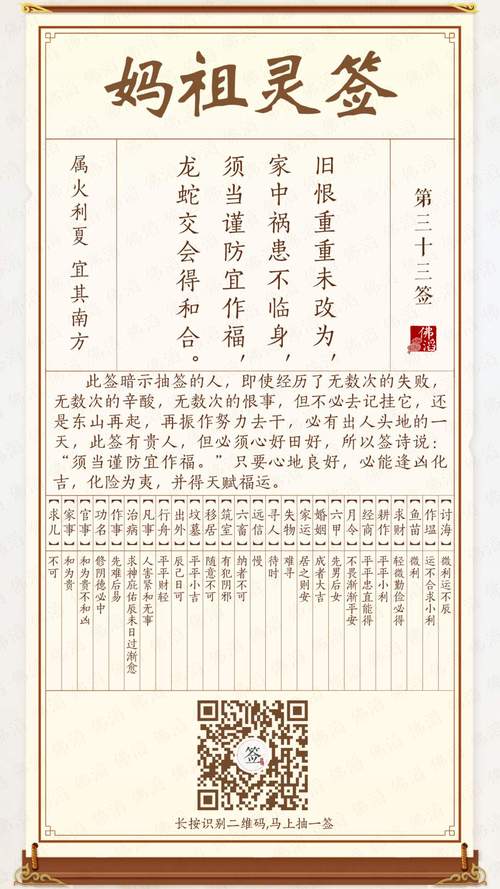 妈祖灵签
第三十三签
佛滔
旧恨重重未改为，
家中祸患不临身，
须当谨防宜作福，
龙蛇交会得和合。
属火利夏 宜其南方
此签暗示抽签的人，即使经历了无数次的失败，
无数次的辛酸，无数次的恨事，但不必去记挂它，还
是东山再起，再振作努力去干，必有出人头地的一
天，此签有贵人，但必须心好田好，所以签诗说：
“须当谨防宜作福。”只要心地良好，必能逢凶化
吉，化险为夷，并得天赋福运。
【讨海】微利运不辰
【作塭】运不合求小利
【鱼苗】微利
【求财】轻微勤俭必得
【耕作】平平小利
【经商】平平忠直能得
【月令】不畏渐渐平安
【六甲】先男后女
【婚姻】成者大吉
【家运】居之则安
【失物】难寻
【寻人】待时
【远信】慢
【六畜】纳者不可
【筑室】有犯阴邪
【移居】随意不可
【坟墓】平平小吉
【出外】辰己日可
【行舟】平平财轻
【凡事】人害紧和无事
【治病】求神庇佑辰未日过渐愈
【作事】先难后易
【功名】修阴德必中
【官事】和为贵不和凶
【家事】和为贵
【求儿】不可
签
长按识别二维码,马上抽一签